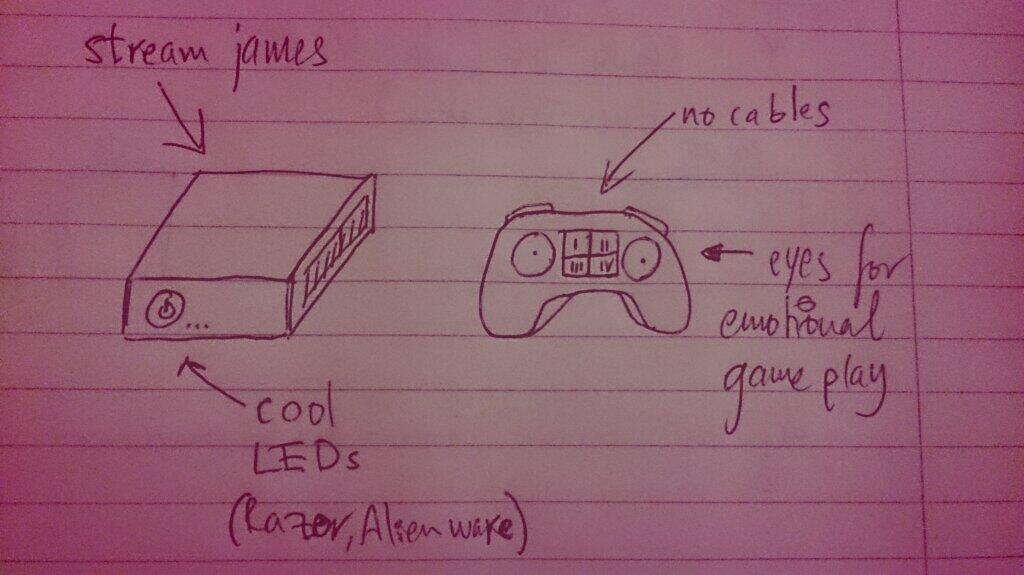 stream james
no cables
I II
III IV
eyes for
emotional
game play
cool
LEDs
(Razor, Alienware)